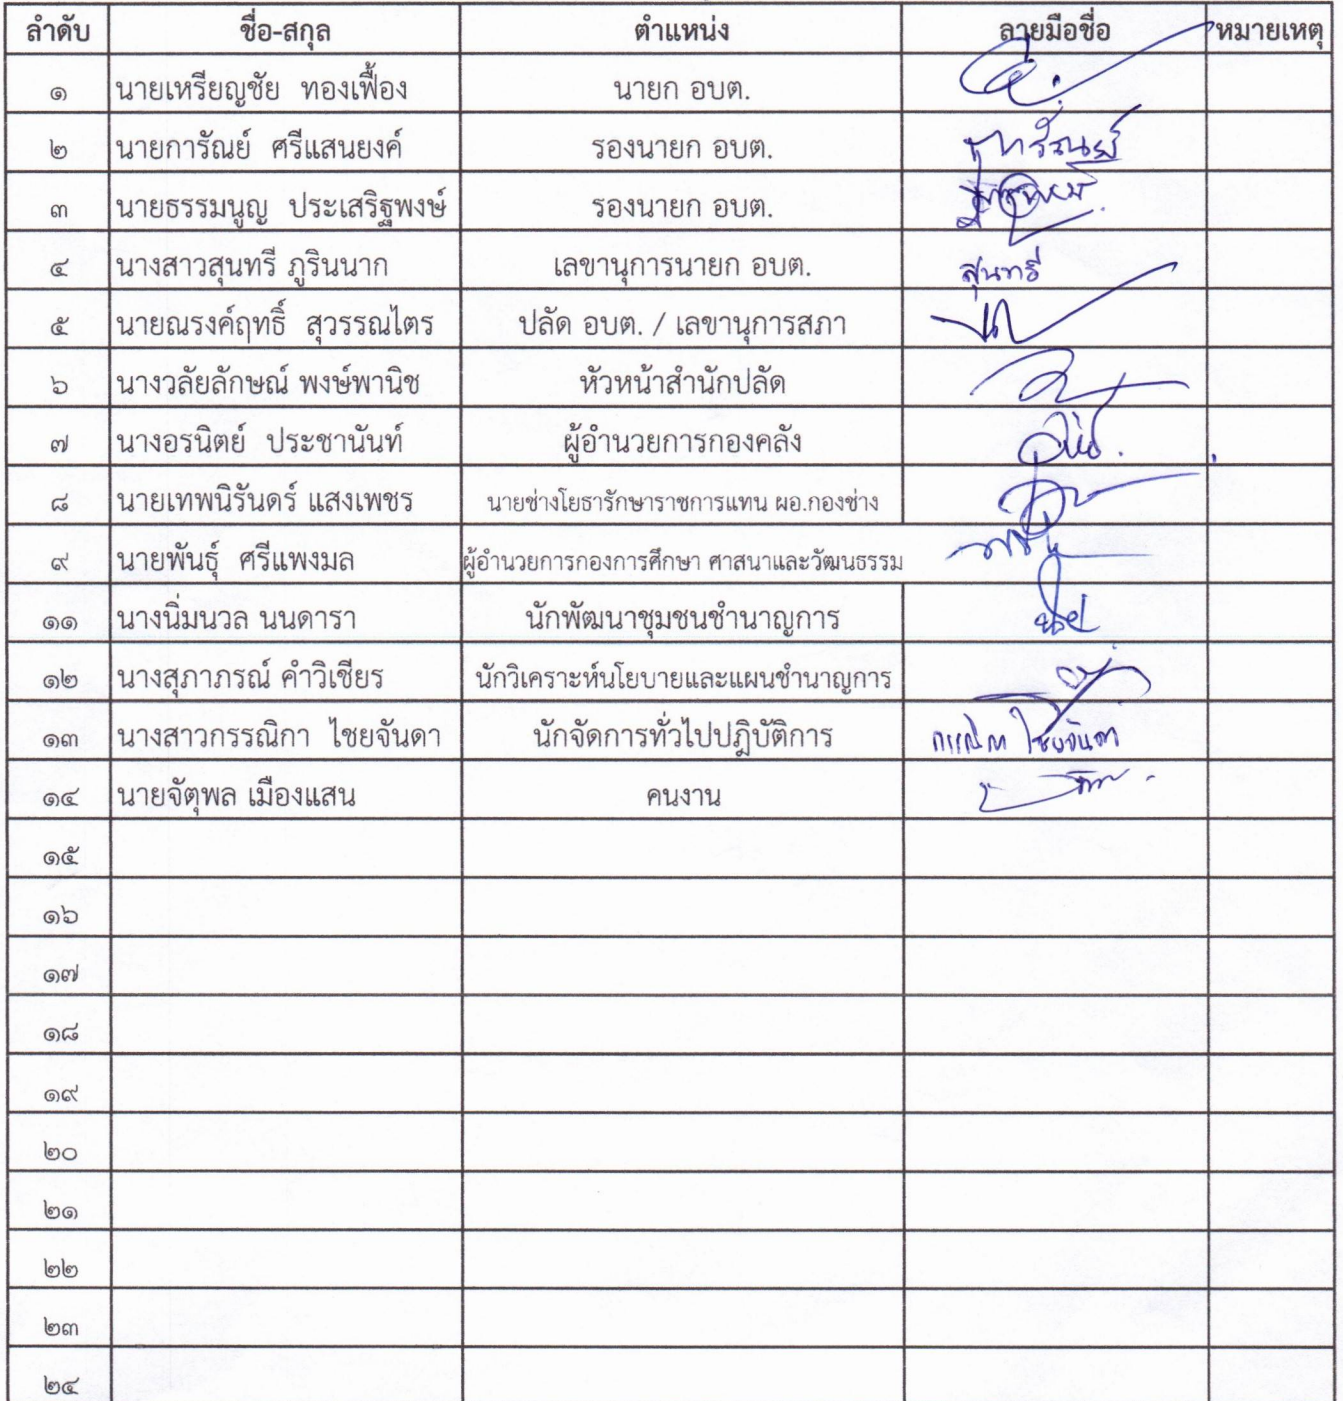 ลำดับ ชื่อ-สกุล ตำแหน่ง ลายมือชื่อ หมายเหตุ
๑ นายเหรียญชัย ทองเฟื้อง นายก อบต.
๒ นายการัณย์ ศรีแสนยงค์ รองนายก อบต. การัณย์
๓ นายธรรมนูญ ประเสริฐพงษ์ รองนายก อบต.
๔ นางสาวสุนทรี ภูรินนาก เลขานุการนายก อบต. สุนทรี
๕ นายณรงค์ฤทธิ์ สุวรรณไตร ปลัด อบต. / เลขานุการสภา
๖ นางวลัยลักษณ์ พงษ์พานิช หัวหน้าสำนักปลัด
๗ นางอรนิตย์ ประชานันท์ ผู้อำนวยการกองคลัง
๘ นายเทพนิรันดร์ แสงเพชร นายช่างโยธารักษาราชการแทน ผอ.กองช่าง
๙ นายพันธุ์ ศรีแพงมล ผู้อำนวยการกองการศึกษา ศาสนาและวัฒนธรรม
๑๑ นางนิ่มนวล นนดารา นักพัฒนาชุมชนชำนาญการ
๑๒ นางสุภาภรณ์ คำวิเชียร นักวิเคราะห์นโยบายและแผนชำนาญการ
๑๓ นางสาวกรรณิกา ไชยจันดา นักจัดการทั่วไปปฏิบัติการ กรรณิกา ไชยจันดา
๑๔ นายจัตุพล เมืองแสน คนงาน
๑๕
๑๖
๑๗
๑๘
๑๙
๒๐
๒๑
๒๒
๒๓
๒๔